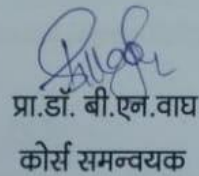 प्रा.डॉ. बी.एन.वाघ
कोर्स समन्वयक